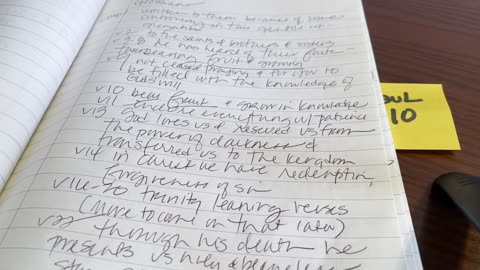 written to them because of some
v2 to the saints & brothers & sisters
he has heard of their faith
bearing fruit & growing
v9 not ceased praying & for you to
be filled with the knowledge of
God's will
v10 bear fruit & grow in knowledge
v11 endure everything w/ patience
v13 God loves us & rescued us from
the power of darkness &
transferred us to the kingdom
v14 in Christ we have redemption,
forgiveness of sin
v16-20 trinity leaning verses
(more to come on that later)
v22 through his death he
presents us holy & blameless
10